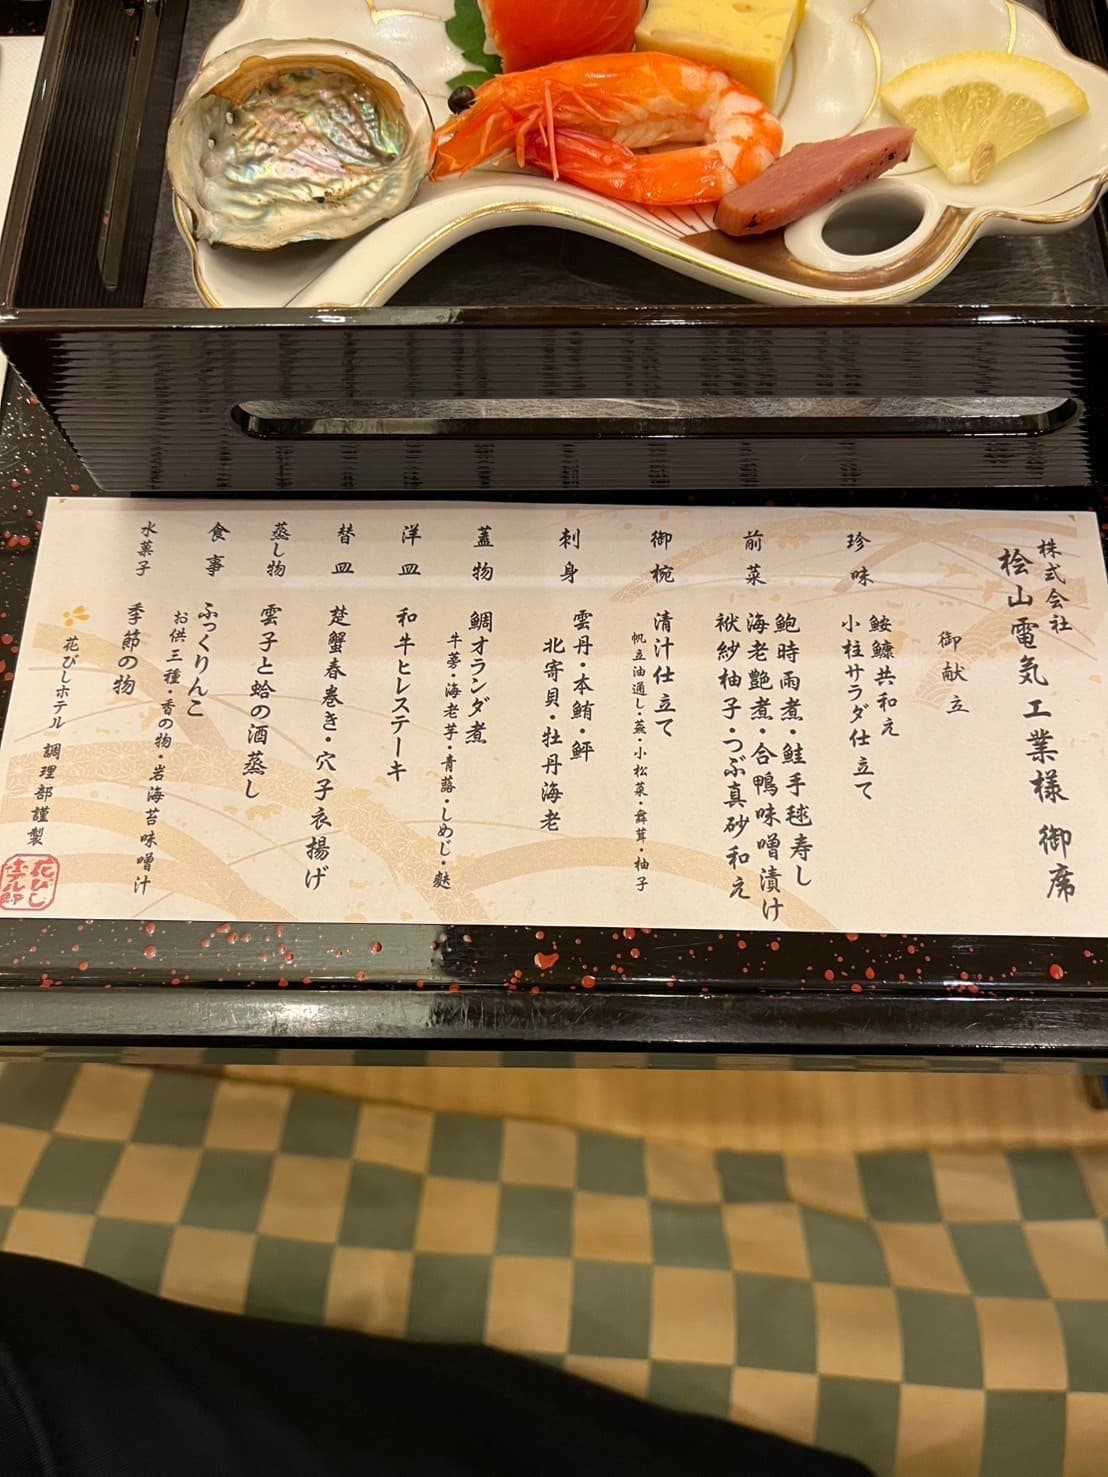 株式会社
桧山電気工業様 御席
御献立
珍味
鮟鱇共和え
小柱サラダ仕立て
前菜
鮑時雨煮・鮭手毬寿し
海老艶煮・合鴨味噌漬け
袱紗柚子・つぶ真砂和え
御椀
清汁仕立て
帆立油通し・蕪・小松菜・舞茸・柚子
刺身
雲丹・本鮪・鮃
北寄貝・牡丹海老
蓋物
鯛オランダ煮
牛蒡・海老芋・青蕗・しめじ・麩
洋皿
和牛ヒレステーキ
替皿
楚蟹春巻き・穴子衣揚げ
蒸し物
雲子と蛤の酒蒸し
食事
ふっくりんこ
お供三種・香の物・岩海苔味噌汁
水菓子
季節の物
花びしホテル 調理部謹製
花びし
ホテル印